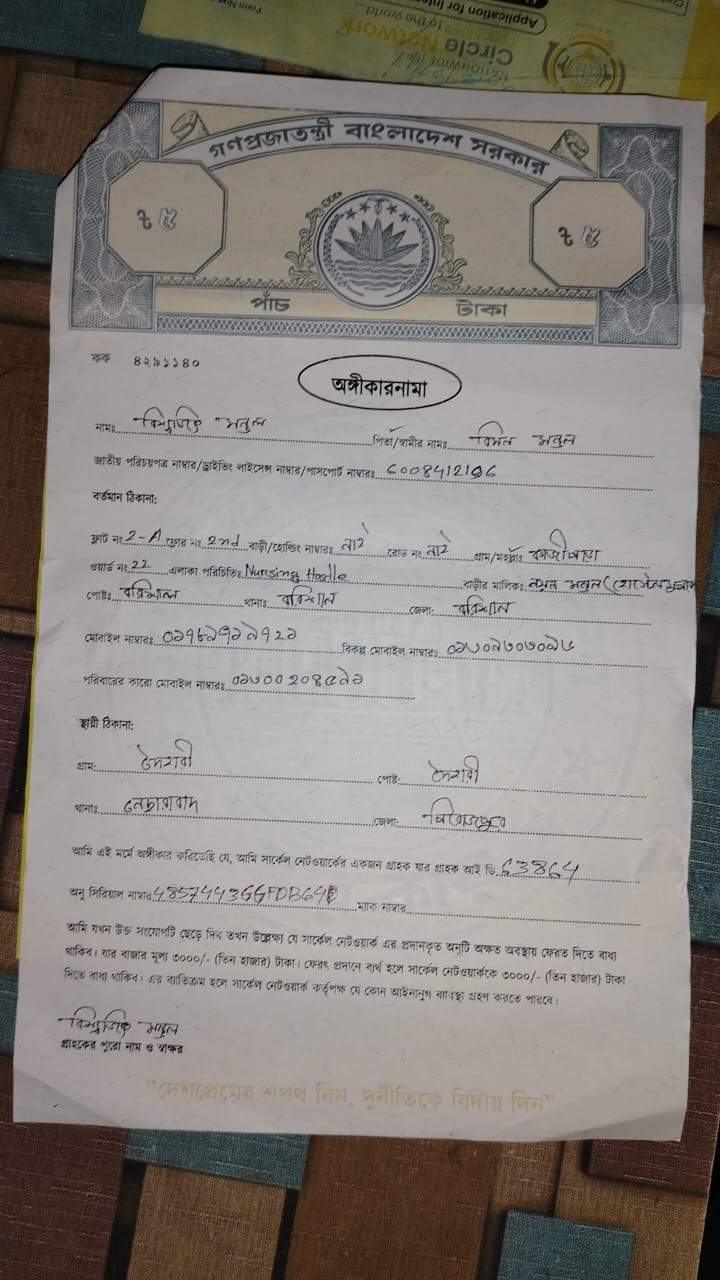 Form No
Application for Inter
Connected to the world
Circle Network
NATIONWIDE
গণপ্রজাতন্ত্রী বাংলাদেশ সরকার
৳ ৫ ৳ ৫
পাঁচ টাকা
কক ৪২৯১১৪০
অঙ্গীকারনামা
নামঃ বিশ্বজিৎ মন্ডল পিতা/স্বামীর নামঃ বিমল মন্ডল
জাতীয় পরিচয়পত্র নাম্বার/ড্রাইভিং লাইসেন্স নাম্বার/পাসপোর্ট নাম্বারঃ
বর্তমান ঠিকানা:
ফ্লাট নং 2-A ফ্লোর নং 2nd বাড়ী/হোল্ডিং নাম্বারঃ নাই রোড নং নাই গ্রাম/মহল্লাঃ
ওয়ার্ড নং 22 এলাকা পরিচিতিঃ Nursing বাড়ীর মালিকঃ
পোষ্টঃ বরিশাল থানাঃ বরিশাল জেলা: বরিশাল
মোবাইল নাম্বারঃ বিকল্প মোবাইল নাম্বারঃ
পরিবারের কারো মোবাইল নাম্বারঃ
স্থায়ী ঠিকানা:
গ্রাম: দৈহারী পোষ্ট: দৈহারী
থানাঃ নেছারাবাদ জেলা: পিরোজপুর
আমি এই মর্মে অঙ্গীকার করিতেছি যে, আমি সার্কেল নেটওয়ার্কের একজন গ্রাহক যার গ্রাহক আই ডি 63864
অনু সিরিয়াল নাম্বার ম্যাক নাম্বার
আমি যখন উক্ত সংযোগটি ছেড়ে দিব তখন উল্লেক্ষ্য যে সার্কেল নেটওয়ার্ক এর প্রদানকৃত অনুটি অক্ষত অবস্থায় ফেরত দিতে বাধ্য
থাকিব। যার বাজার মূল্য ৩০০০/- (তিন হাজার) টাকা। ফেরৎ প্রদানে ব্যর্থ হলে সার্কেল নেটওয়ার্ককে ৩০০০/- (তিন হাজার) টাকা
দিতে বাধ্য থাকিব। এর ব্যতিক্রম হলে সার্কেল নেটওয়ার্ক কর্তৃপক্ষ যে কোন আইনানুগ ব্যবস্থা গ্রহণ করতে পারবে।
বিশ্বজিৎ মন্ডল
গ্রাহকের পুরো নাম ও স্বাক্ষর
"দেশপ্রেমের শপথ নিন, দুর্নীতিকে বিদায় দিন"